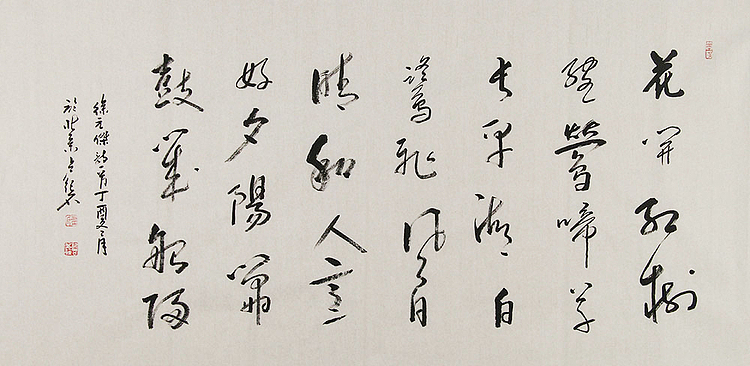 花開紅樹
亂鶯啼草
長平湖白
鷺飛風日
晴和人意
好夕陽簫
鼓幾船歸
徐元傑詩一首丁酉月
於北京